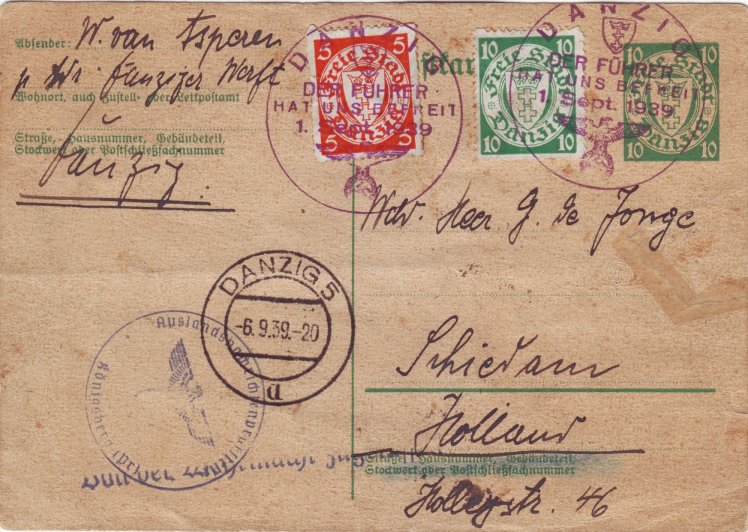 Absender: W. van Isperen
Danziger Werft
Wohnort, auch Zustell- oder Leitpostamt
Straße, Hausnummer, Gebäudeteil,
Stockwerk oder Postschließfachnummer
Danzig.
5 5
Freie Stadt
Danzig
5 5
10 10
Freie Stadt
Danzig
10 10
10
Stadt
Danzig
10 10
DANZIG
DER FÜHRER
HAT UNS BEFREIT
1. Sept. 1939
DANZIG
DER FÜHRER
HAT UNS BEFREIT
1. Sept. 1939
Heer G. de Jonge
DANZIG 5
-6.9.39.-20
D
Schiedam
Holland
Straße, Hausnummer, Gebäudeteil,
Stockwerk oder Postschließfachnummer
46